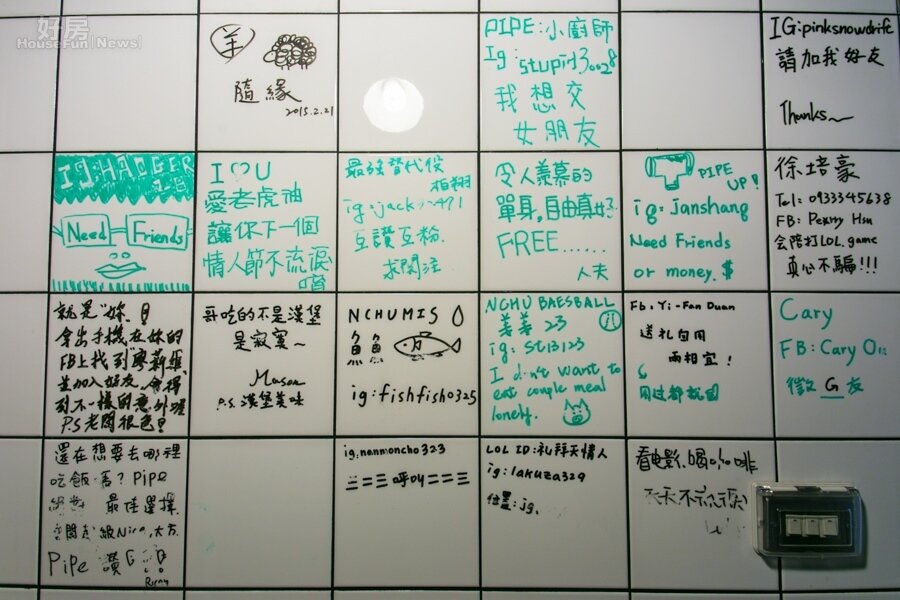 好房
HouseFun News
羊
隨緣
2015.2.21
PIPE:小廚師
Ig:stupid30028
我想交
女朋友
IG:pinksnowdrift
請加我好友
Thanks~
IG:HADGER
Need Friends
I ♡ U
愛老虎油
讓你下一個
情人節不流淚
最強替代役
柏翔
互讚互粉
求關注
令人羨慕的
單身,自由真好
FREE......
人夫
PIPE
UP!
ig:Janshang
Need Friends
or money.$
徐培豪
Tel: 0933345638
FB: Penny Hsu
會陪打LOL.game
真心不騙!!!
就是"妳"!
拿出手機在妳的
FB上找到"廖莉雅"
並加入好友,會得
到不一樣的意外喔
P.S老闆很色!
哥吃的不是漢堡
是寂寞~
Mason
P.S.漢堡美味
NCHUMIS
魚魚
ig:fishfish0325
NCHU BAESBALL
羊羊 23
ig: st13123
I don't want to
eat couple meal
lonely.
Fb: Yi-Fan Duan
送礼自用
兩相宜!
用过都說
Cary
FB: Cary O
徵 G 友
還在想要去哪裡
吃飯嗎? Pipe
絕對 最佳選擇
級Nice,大方
Pipe 讚
ig.nanmoncho323
二二三呼叫二二三
LOL ID:礼拜天情人
ig:lakuza329
位置:jg.
看电影、喝咖啡
天天不流淚